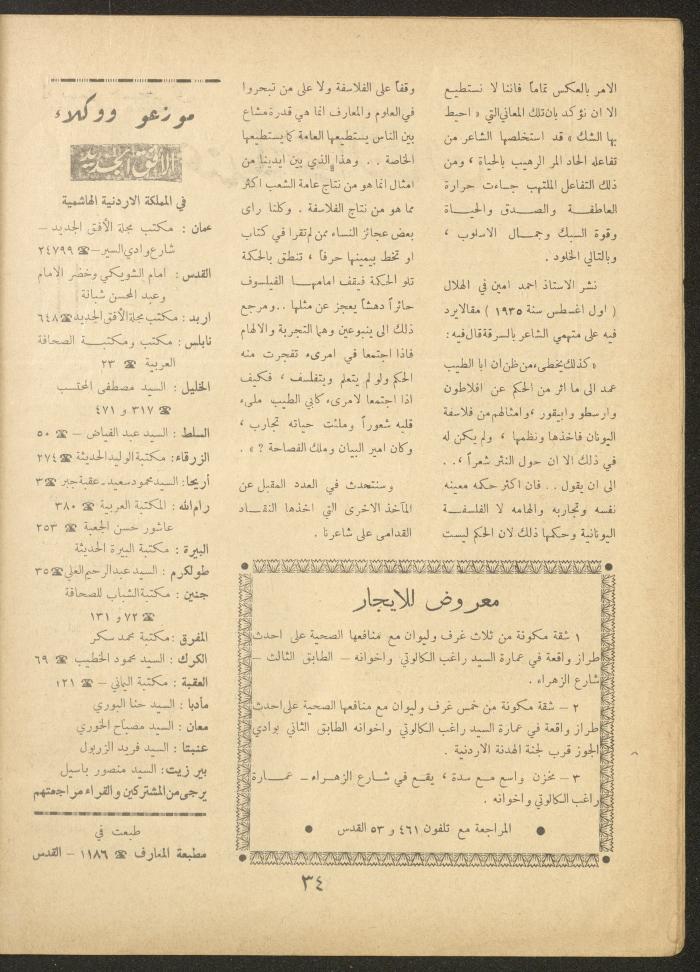 الامر بالعكس تماماً فاننا لا نستطيع
الا ان نؤكد بان تلك المعاني التي « احيط
بها الشك » قد استخلصها الشاعر من
تفاعله الحاد المر الرهيب بالحياة ، ومن
ذلك التفاعل الملتهب جاءت حرارة
العاطفة والصدق والحياة
وقوة السبك وجمال الاسلوب ،
وبالتالي الخلود .
نشر الاستاذ احمد امين في الهلال
( اول اغسطس سنة ١٩٣٥ ) مقالا يرد
فيه على متهمي الشاعر بالسرقة قال فيه :
« كذلك يخطىء من ظن ان ابا الطيب
عمد الى ما اثر من الحكم عن افلاطون
وارسطو وابيقور ، وامثالهم من فلاسفة
اليونان فاخذها ونظمها ، ولم يكن له
في ذلك الا ان حول النثر شعراً ، ..
الى ان يقول .. فان اكثر حكمه معينه
نفسه وتجاربه والهامه لا الفلسفة
اليونانية وحكمها ذلك لان الحكم ليست
وقفاً على الفلاسفة ولا على من تبحروا
في العلوم والمعارف انما هي قدرة مشاع
بين الناس يستطيعها العامة كما يستطيعها
الخاصة .. وهذا الذي بين ايدينا من
امثال انما هو من نتاج عامة الشعب اكثر
مما هو من نتاج الفلاسفة . وكلنا راى
بعض عجائز النساء ممن لم تقرا في كتاب
او تخط بيمينها حرفاً ، تنطق بالحكمة
تلو الحكمة فيقف امامها الفيلسوف
حائراً دهشاً يعجز عن مثلها .. ومرجع
ذلك الى ينبوعين وهما التجربة والالهام
فاذا اجتمعا في امرىء تفجرت منه
الحكم ولو لم يتعلم ويتفلسف ، فكيف
اذا اجتمعا لامرىء كابي الطيب ملىء
قلبه شعوراً وملئت حياته تجارب ،
وكان امير البيان وملك الفصاحة ؟ » .
وسنتحدث في العدد المقبل عن
المآخذ الاخرى التي اخذها النقاد
القدامى على شاعرنا .
معروض للايجار
١ شقة مكونة من ثلاث غرف وليوان مع منافعها الصحية على احدث
طراز واقعة في عمارة السيد راغب الكالوتي واخوانه – الطابق الثالث –
شارع الزهراء .
٢ – شقة مكونة من خمس غرف وليوان مع منافعها الصحية على احدث
طراز واقعة في عمارة السيد راغب الكالوتي واخوانه الطابق الثاني بوادي
الجوز قرب لجنة الهدنة الاردنية .
٣ – مخزن واسع مع سدة ، يقع في شارع الزهراء – عمارة
راغب الكالوتي واخوانه .
المراجعة مع تلفون ٤٦١ و ٥٣ القدس
موزعو ووكلاء
الأفق الجديد
في المملكة الاردنية الهاشمية
عمان : مكتب مجلة الأفق الجديد –
شارع وادي السير – ☎ ٢٤٧٩٩
القدس : امام الشويكي وخضر الامام
وعبد المحسن شبانة
اربد : مكتب مجلة الأفق الجديد ☎ ٦٤٨
نابلس : مكتب ومكتبة الصحافة
العربية ☎ ٢٣
الخليل : السيد مصطفى المحتسب
☎ ٣١٧ و ٤٧١
السلط : السيد عبد الفياض – ☎ ٥٠
الزرقاء : مكتبة الوليد الحديثة ☎ ٢٧٤
أريحا : السيد محمود سعيد – عقبة جبر ☎ ٣
رام الله : المكتبة العربية ☎ ٣٨٠
عاشور حسن الجعبة ☎ ٢٥٣
البيرة : مكتبة البيرة الحديثة
طولكرم : السيد عبد الرحيم العلي ☎ ٣٥
جنين : مكتبة الشباب للصحافة
☎ ٧٢ و ١٣١
المفرق : مكتبة محمد سكر
الكرك : السيد محمود الخطيب ☎ ٦٩
العقبة : مكتبة اليماني – ☎ ١٢١
مأدبا : السيد حنا البوري
معان : السيد مصباح الخوري
عنبتا : السيد فريد الزربول
بير زيت : السيد منصور باسيل
يرجى من المشتركين والقراء مراجعتهم
طبعت في
مطبعة المعارف ☎ ١١٨٦ – القدس
٣٤